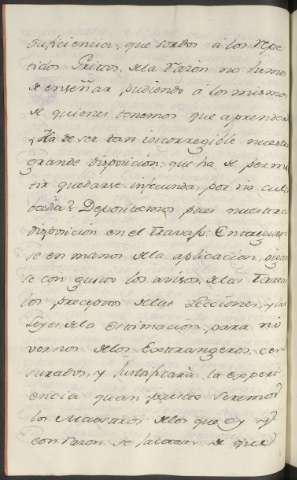 suficiencia, que sordos á los repe
tidos Gritos, de la razon no hemos
de enseñar, pudiendo á los mismos
de quienes tenemos que aprender
Ha de ser tan incorregible nuestra
grande disposicion, que ha de permi
tir quedarse infecunda, por sin cul
Depositemos pues nuestra
disposicion en el travajo. Entregue
se en manos de la aplicacion, oigan
se con gusto los avisos, de las Tareas
los preceptos de las Lecciones, y las
Leyes de la estimacion, para no
vernos de los Extrangeros, cen
surados, y Justificará la experi
encia quan presto seremos
los Maestros de los que oy
con razon se jactan de que